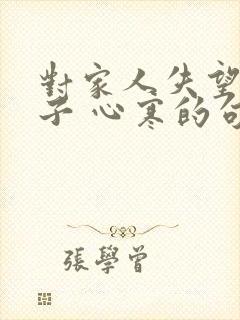 對家人失望
子 心寒的句
張學曾